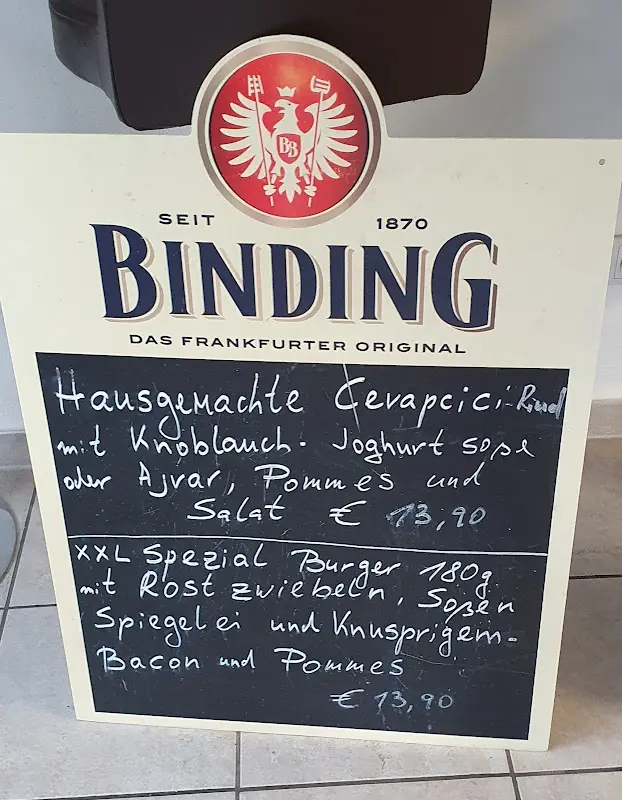 BB
SEIT 1870
BINDING
DAS FRANKFURTER ORIGINAL
Hausgemachte Cevapcici-Rind
mit Knoblauch-Joghurt soße
oder Ajvar, Pommes und
Salat € 13,90
XXL Spezial Burger 180g
mit Röst zwiebeln, Soßen
Spiegelei und Knusprigem-
Bacon und Pommes
€ 13,90